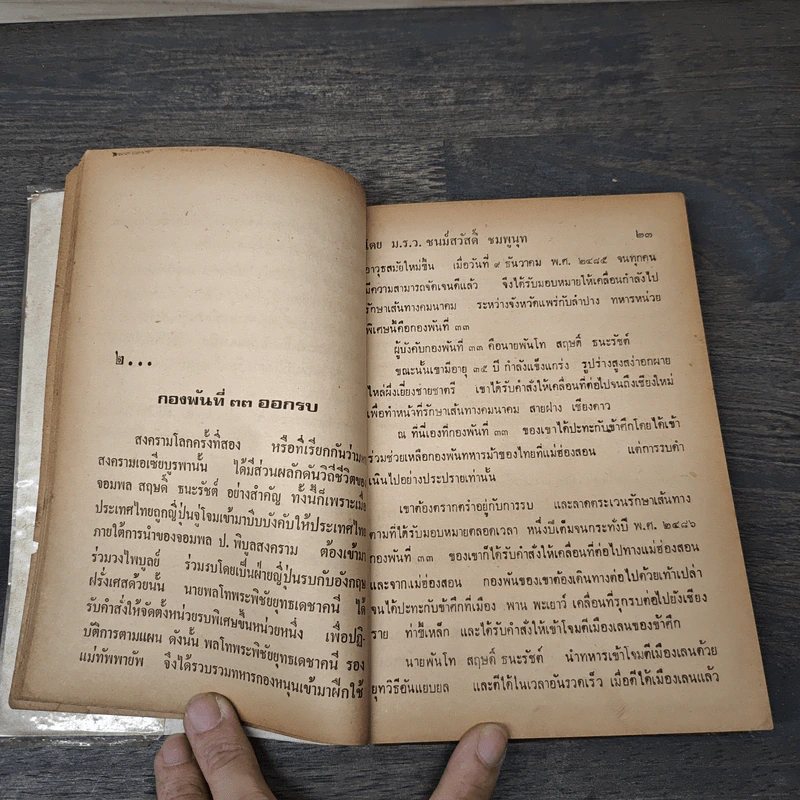 ๒...
กองพันที่ ๓๓ ออกรบ
สงครามโลกครั้งที่สอง หรือที่เรียกกันว่ามหา
สงครามเอเซียบูรพานั้น ได้มีส่วนผลักดันวิถีชีวิตของ
จอมพล สฤษดิ์ ธนะรัชต์ อย่างสำคัญ ทั้งนี้ก็เพราะเมื่อ
ประเทศไทยถูกญี่ปุ่นจู่โจมเข้ามาบีบบังคับให้ประเทศไทย
ภายใต้การนำของจอมพล ป. พิบูลสงคราม ต้องเข้ามา
ร่วมวงไพบูลย์ ร่วมรบโดยเป็นฝ่ายญี่ปุ่นรบกับอังกฤษ
ฝรั่งเศสด้วยนั้น นายพลโทพระพิชัยยุทธเดชาคนี ได้
รับคำสั่งให้จัดตั้งหน่วยรบพิเศษขึ้นหน่วยหนึ่ง เพื่อปฏิ-
บัติการตามแผน ดังนั้น พลโทพระพิชัยยุทธเดชาคนี รอง
แม่ทัพพายัพ จึงได้รวบรวมทหารกองหนุนเข้ามาฝึกใช้
โดย ม.ร.ว. ชนม์สวัสดิ์ ชมพูนุท ๒๓
อาวุธสมัยใหม่ขึ้น เมื่อวันที่ ๙ ธันวาคม พ.ศ. ๒๔๘๕ จนทุกคน
มีความสามารถจัดเจนดีแล้ว จึงได้รับมอบหมายให้เคลื่อนกำลังไป
รักษาเส้นทางคมนาคม ระหว่างจังหวัดแพร่กับลำปาง ทหารหน่วย
พิเศษนี้คือกองพันที่ ๓๓
ผู้บังคับกองพันที่ ๓๓ คือนายพันโท สฤษดิ์ ธนะรัชต์
ขณะนั้นเขามีอายุ ๓๕ ปี กำลังแข็งแกร่ง รูปร่างสูงสง่าอกผาย
ไหล่ผึ่งเยี่ยงชายชาตรี เขาได้รับคำสั่งให้เคลื่อนที่ต่อไปจนถึงเชียงใหม่
เพื่อทำหน้าที่รักษาเส้นทางคมนาคม สายฝาง เชียงดาว
ณ ที่นี่เองที่กองพันที่ ๓๓ ของเขาได้ปะทะกับข้าศึกโดยได้เข้า
ร่วมช่วยเหลือกองพันทหารม้าของไทยที่แม่ฮ่องสอน แต่การรบดำ
เนินไปอย่างประปรายเท่านั้น
เขาต้องตรากตรำอยู่กับการรบ และลาดตระเวนรักษาเส้นทาง
ตามที่ได้รับมอบหมายตลอดเวลา หนึ่งปีเต็มจนกระทั่งปี พ.ศ. ๒๔๘๖
กองพันที่ ๓๓ ของเขาก็ได้รับคำสั่งให้เคลื่อนที่ต่อไปทางแม่ฮ่องสอน
และจากแม่ฮ่องสอน กองพันของเขาต้องเดินทางต่อไปด้วยเท้าเปล่า
จนได้ปะทะกับข้าศึกที่เมือง พาน พะเยาว์ เคลื่อนที่รุกรบต่อไปยังเชียง
ราย ท่าขี้เหล็ก และได้รับคำสั่งให้เข้าโจมตีเมืองเลนของข้าศึก
นายพันโท สฤษดิ์ ธนะรัชต์ นำทหารเข้าโจมตีเมืองเลนด้วย
ยุทวิธีอันแยบยล และตีได้ในเวลาอันรวดเร็ว เมื่อตีได้เมืองเลนแล้ว